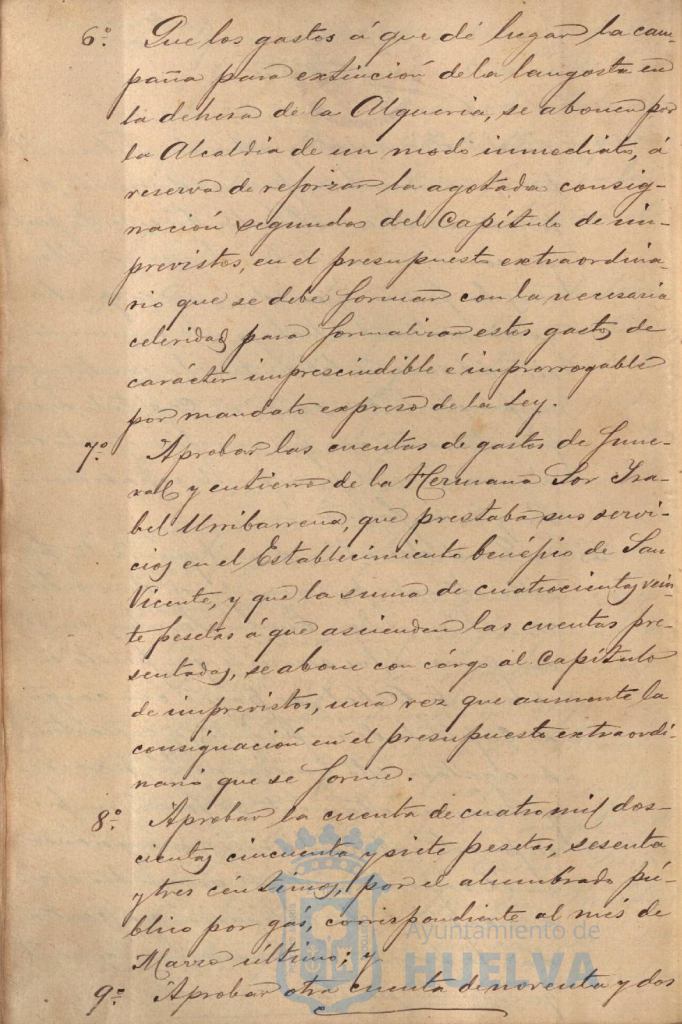 6º. Que los gastos á que dé lugar la cam-
paña para extinción de la langosta en
la dehesa de la Alqueria, se abonen por
la Alcaldía de un modo inmediato, á
reserva de reforzar la agotada consig-
nación segundas del Capítulo de im-
previstos, en el presupuesto extraordina-
rio que se debe formar con la necesaria
celeridad para formalizar estos gastos de
carácter imprescindible é improrrogable
por mandato expreso de la Ley.
7º. Aprobar las cuentas de gastos de fune-
ral y entierro de la Hermana Sor Isa-
bel Urribarrena, que prestaba sus servi-
cios en el Establecimiento benéfico de San
Vicente, y que la suma de cuatrocientas vein-
te pesetas á que ascienden las cuentas pre-
sentadas, se abone con cárgo al Capítulo
de imprevistos, una vez que aumente la
consignación en el presupuesto extraordi-
nario que se forme.
8º. Aprobar la cuenta de cuatro mil dos-
cientas cincuenta y siete pesetas, sesenta
y tres céntimos, por el alumbrado pú-
blico por gás, correspondiente al més de
Marzo último; y
9º. Aprobar otra cuenta de noventa y dos
Ayuntamiento de
HUELVA